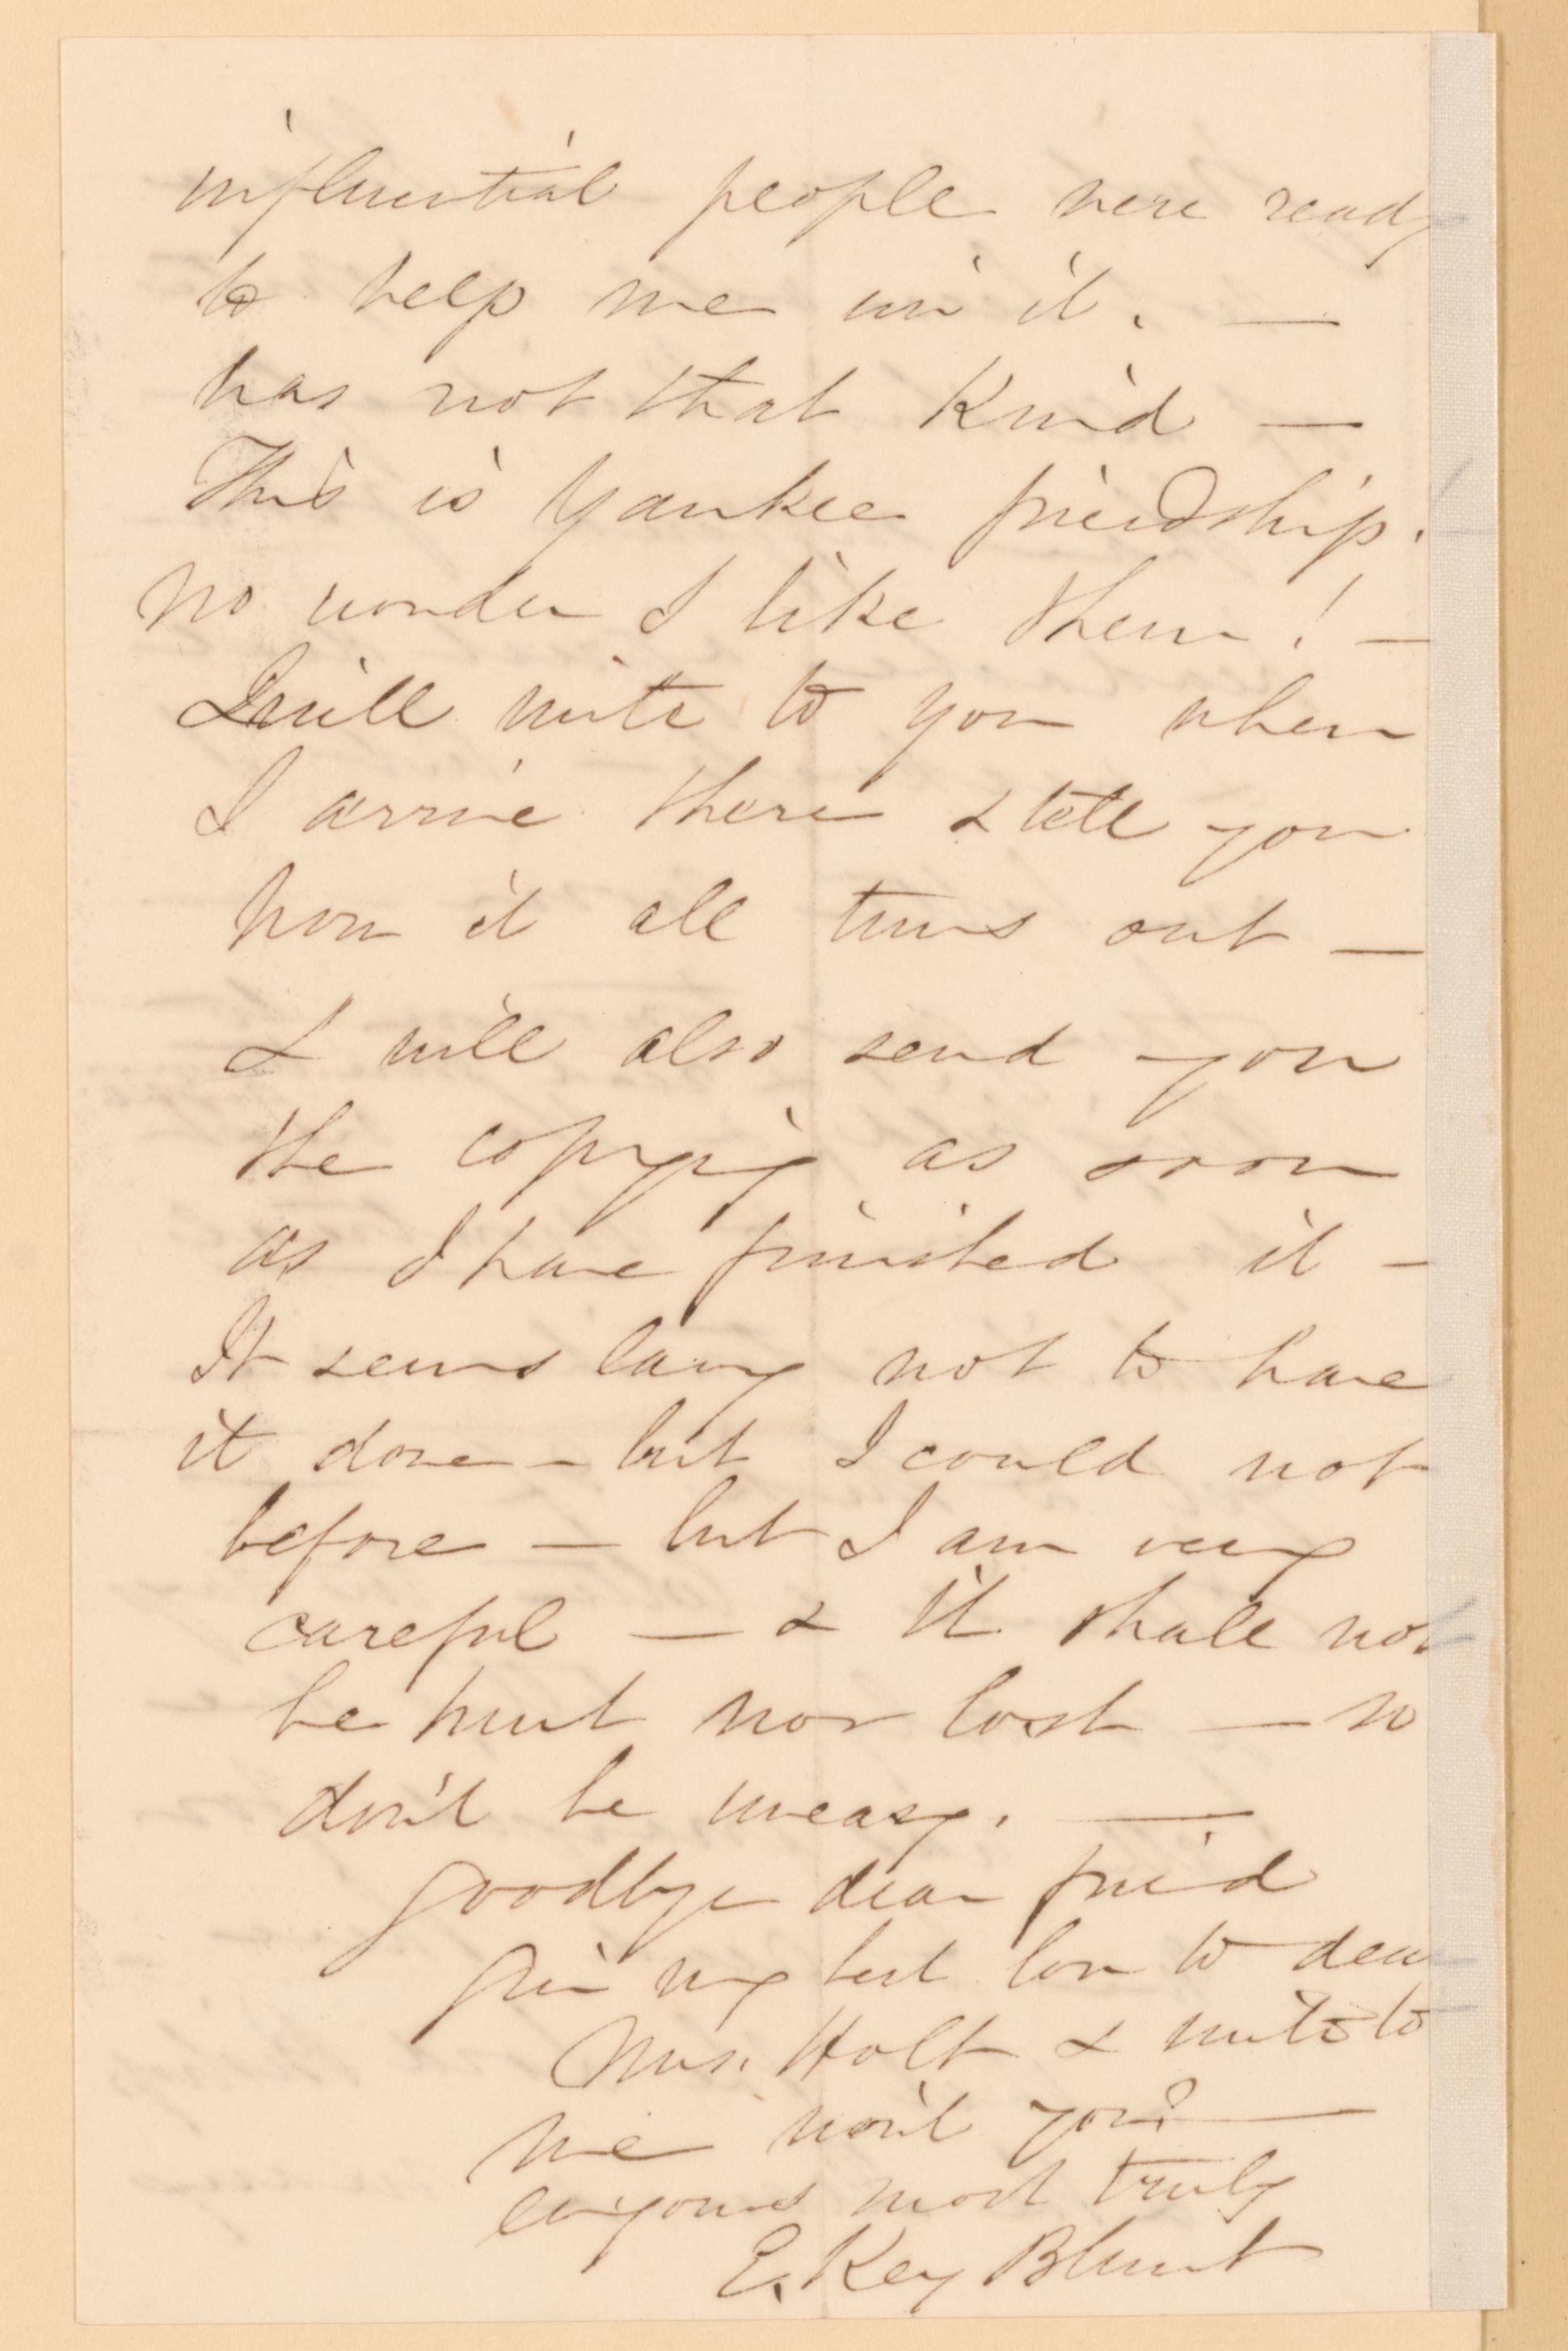 influential people were ready
to help me in it. —
has not that kind —
This is Yankee friendship.
No wonder I like them! —
I will write to you when
I arrive there & tell you
how it all turns out —
I will also send you
the copying as soon
as I have finished it —
It seems long not to have
it done — but I could not
before — but I am very
careful — & it shall not
be hurt nor lost — so
don't be uneasy. —
Goodbye dear friend
Give my best love to dear
Mrs. Holt & write to
me won't you? —
yours most truly
E. Key Blunt